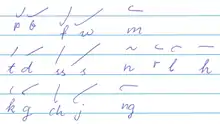 p b f w m
t d n r l h
k g ch j ng